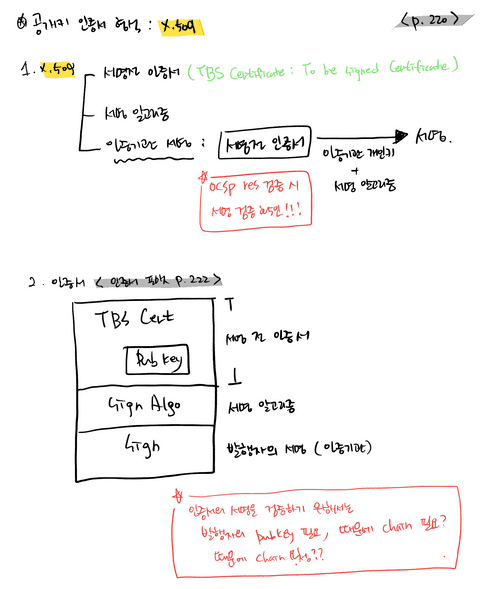 ※ 공개키 인증서 형식 : X.509
< P. 220 >
1. X.509
서명전 인증서 (TBS Certificate : To be signed Certificate)
서명 알고리즘
인증기관 서명 :
서명전 인증서
서명.
인증기관 개인키
+
서명 알고리즘
☆
OCSP res 검증 시
서명 검증
!!!
2. 인증서 < 인증서 P. 222 >
TBS Cert
Pub key
Sign Algo
Sign
서명 전 인증서
서명 알고리즘
발행자의 서명 (인증기관)
☆
인증서의 서명을 검증하기 위해서는
발행자의 pubkey 필요, 때문에 chain 필요?
때문에 chain ??